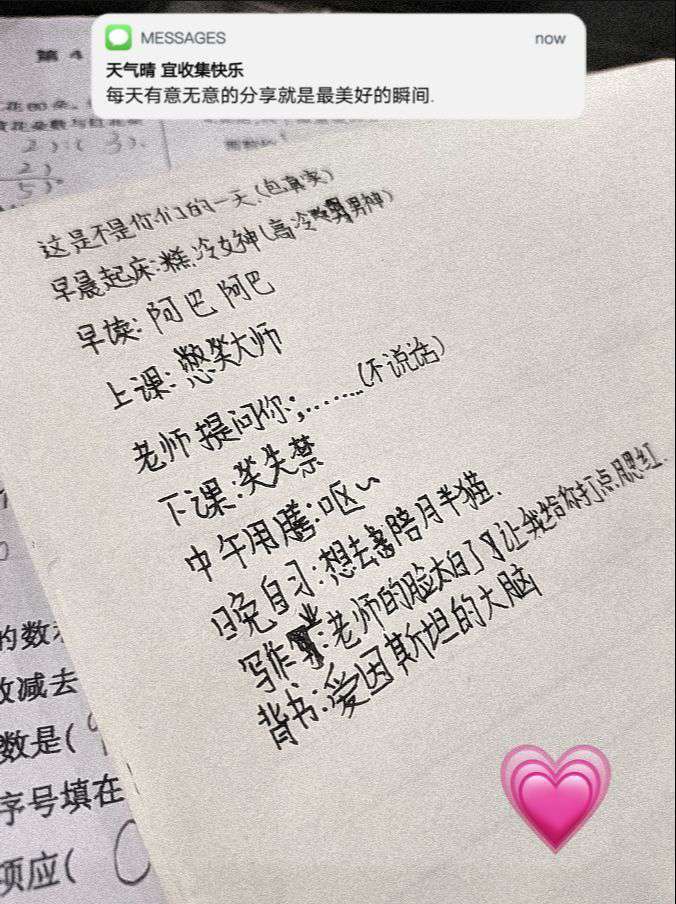 MESSAGES
now
天气晴 宜收集快乐
每天有意无意的分享就是最美好的瞬间.
第 4
2):( 3).
2)
5).
这是不是你们的一天.(包真实)
早晨起床:糕.冷女神(高冷男神)
早读:阿巴阿巴
上课:憋笑大师
老师提问你:.......(不说话)
下课:笑失禁
中午用膳:呕~
晚自习:想去陪月半猫.
写作业:老师的脸太白了让我给你打点腮红.
背书:爱因斯坦的大脑
的数
减去
数是(
序号填在
项应(